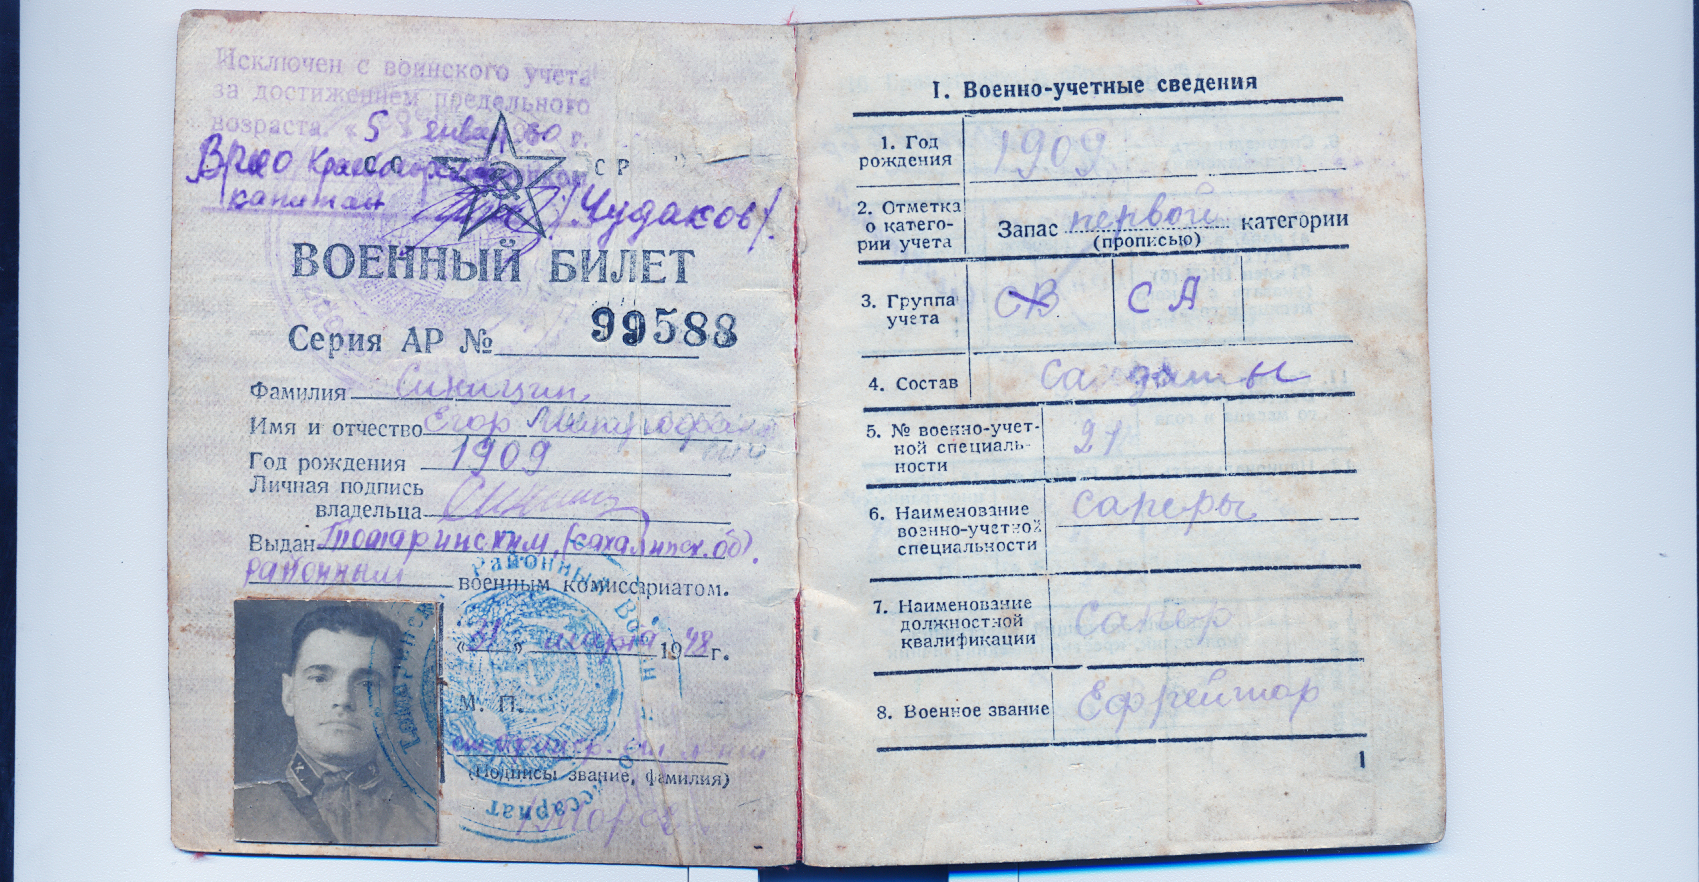 Исключен с воинского учета
за достижением предельного
возраста. «5» янва 60 г.
Врио
капитан /Чудаков/.
СССР
ВОЕННЫЙ БИЛЕТ
Серия АР № 99588
Фамилия Синицин
Имя и отчество Егор
Год рождения 1909
Личная подпись
владельца
Выдан Томаринским (сахалинск. об).
районным военным комиссариатом.
«31» марта 1948 г.
М. П.
(Подпись, звание, фамилия)
I. Военно-учетные сведения
1. Год
рождения 1909
2. Отметка
о катего-
рии учета
Запас первой категории
(прописью)
3. Группа
учета СВ СА
4. Состав Солдаты
5. № военно-учет-
ной специаль-
ности 21
6. Наименование
военно-учетной
специальности саперы
7. Наименование
должностной
квалификации Сапер
8. Военное звание Ефрейтор
1